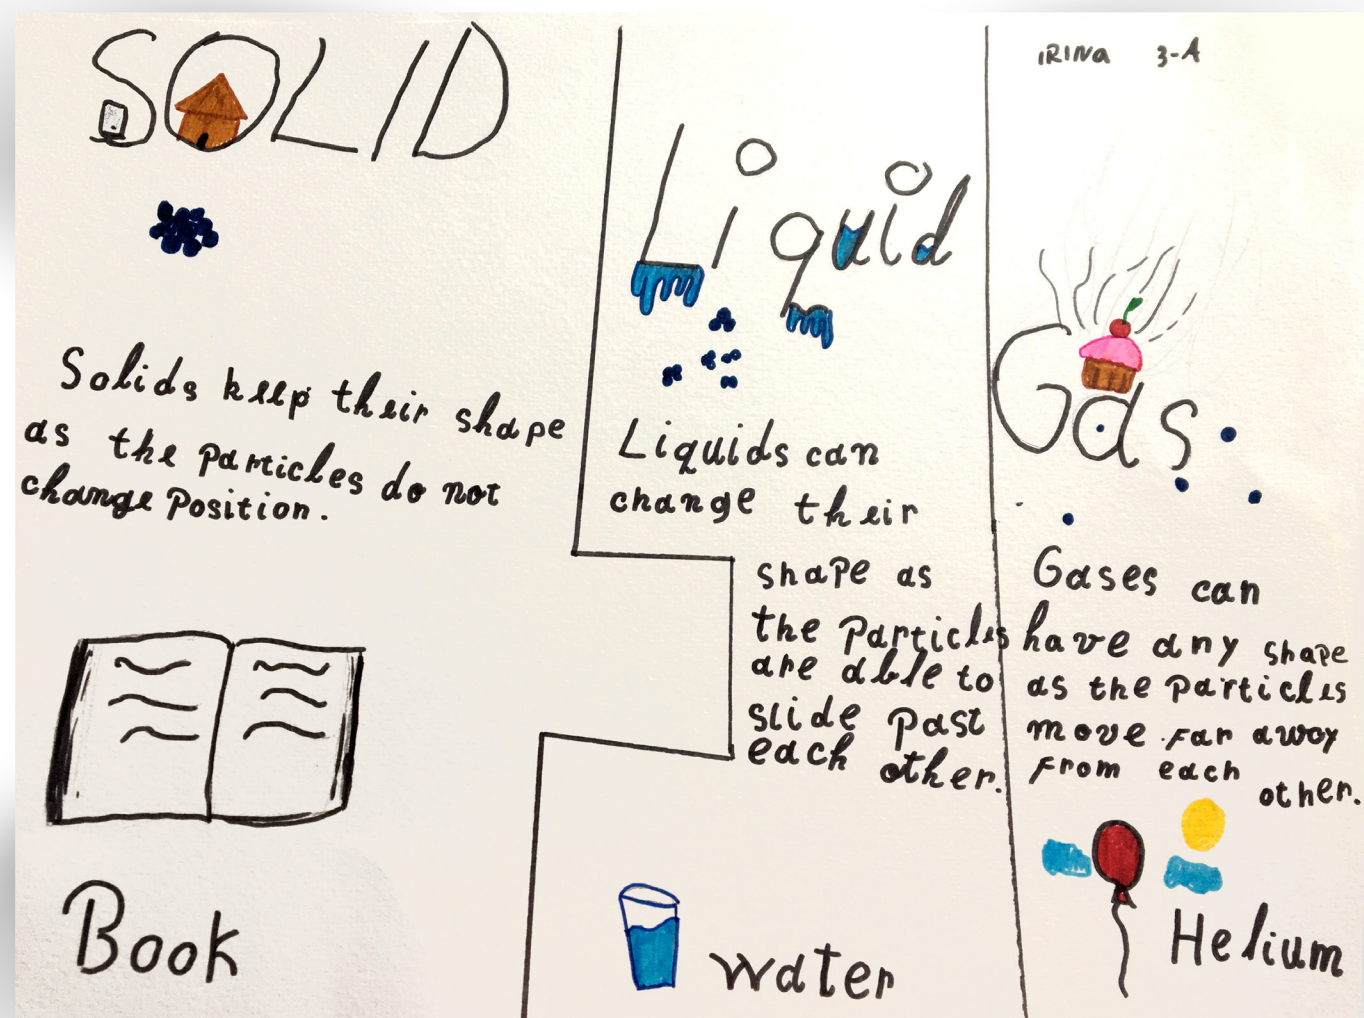 SOLID
Solids keep their shape
as the particles do not
change position.
Book
Liquid
Liquids can
change their
shape as
the particles
are able to
slide past
each other.
water
IRINA 3-A
Gas
Gases can
have any shape
as the particles
move far away
from each
other.
Helium